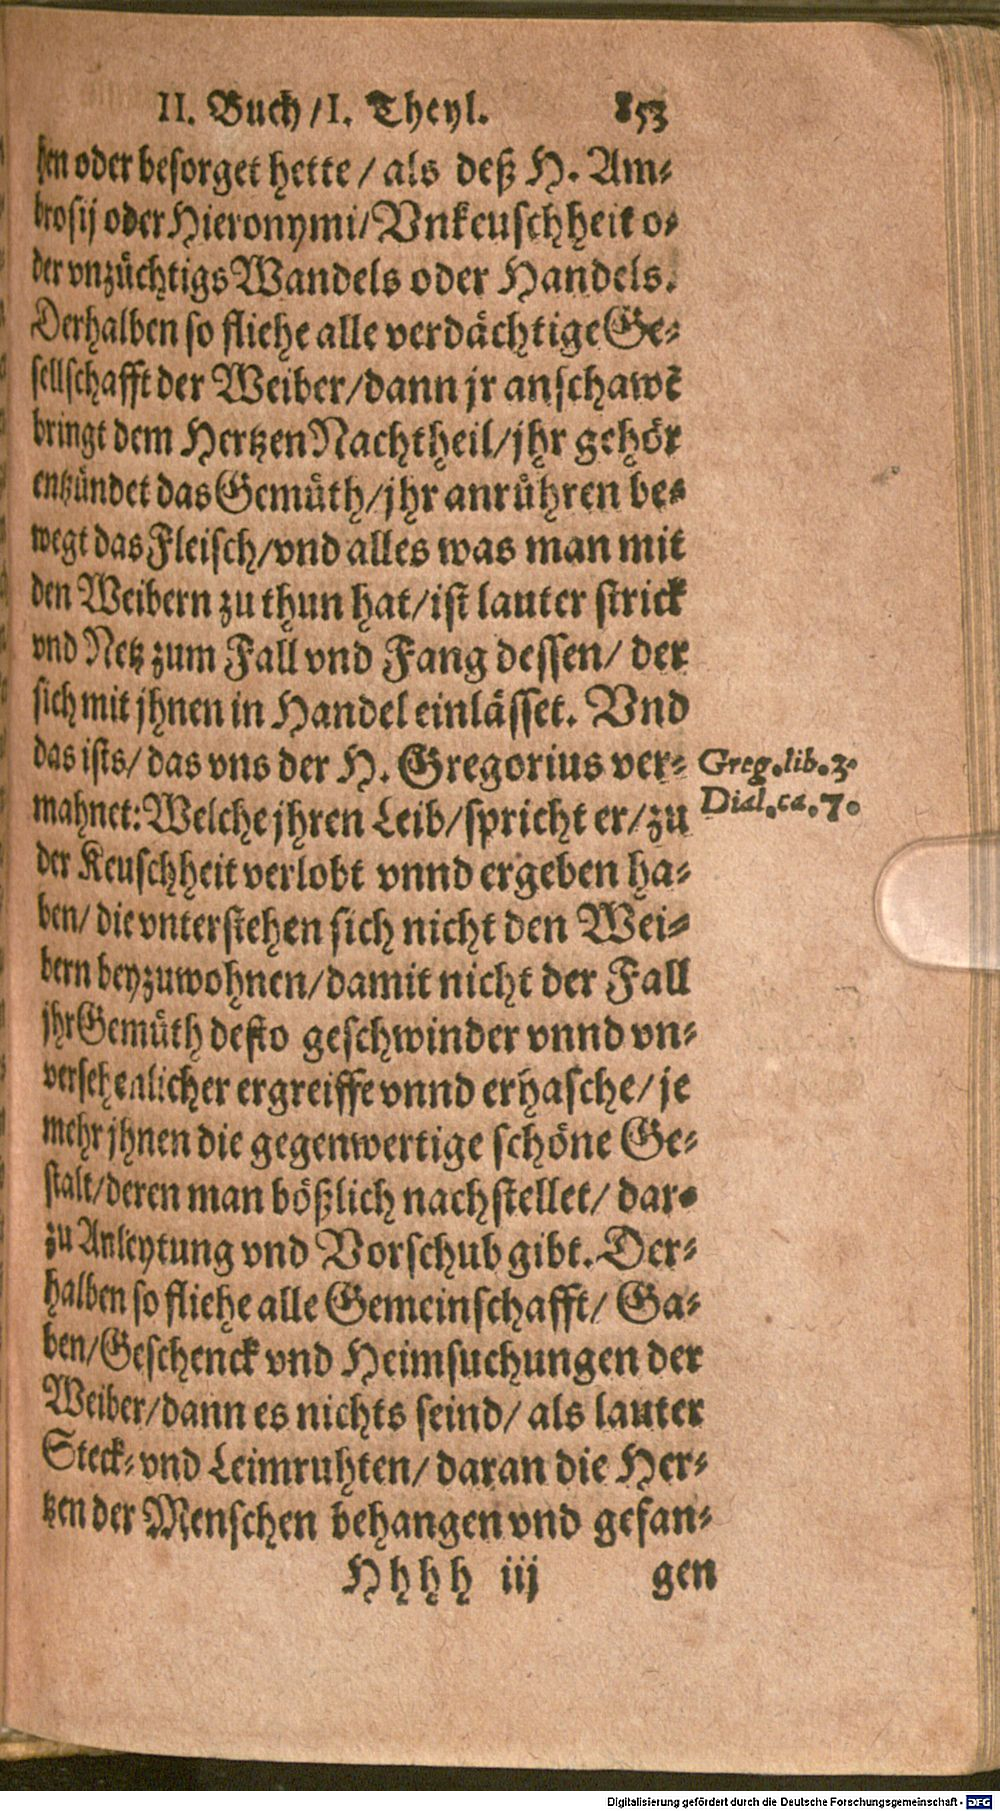 II. Buch/I. Theyl. 853
hen oder besorget hette / als deß H. Am⸗
brosij oder Hieronymi/Vnkeuschheit o⸗
der vnzüchtigs Wandels oder Handels.
Derhalben so fliehe alle verdächtige Ge⸗
sellschafft der Weiber/dann jr anschawē
bringt dem Hertzen Nachtheil/jhr gehör
entzündet das Gemüth/jhr anrühren be⸗
wegt das Fleisch/vnd alles was man mit
den Weibern zu thun hat/ist lauter strick
vnd Netz zum Fall vnd Fang dessen/ der
sich mit jhnen in Handel einlässet. Vnd
das ists/ das vns der H. Gregorius ver⸗
Greg.lib.3.
mahnet: Welche jhren Leib/spricht er/zu
Dial.ca.7.
der Keuschheit verlobt vnnd ergeben ha⸗
ben/ die vnterstehen sich nicht den Wei⸗
bern beyzuwohnen/damit nicht der Fall
jhr Gemüth desto geschwinder vnnd vn⸗
versehenlicher ergreiffe vnnd erhasche/je
mehr jhnen die gegenwertige schöne Ge⸗
stalt/deren man bößlich nachstellet/ dar⸗
zu Anleytung vnd Vorschub gibt. Der⸗
halben so fliehe alle Gemeinschafft/ Ga⸗
ben/Geschenck vnd Heimsuchungen der
Weiber/dann es nichts seind/ als lauter
Steck⸗ vnd Leimruhten/ daran die Her⸗
tzen der Menschen behangen vnd gefan⸗
Hhhh iij gen
Digitalisierung gefördert durch die Deutsche Forschungsgemeinschaft - DFG